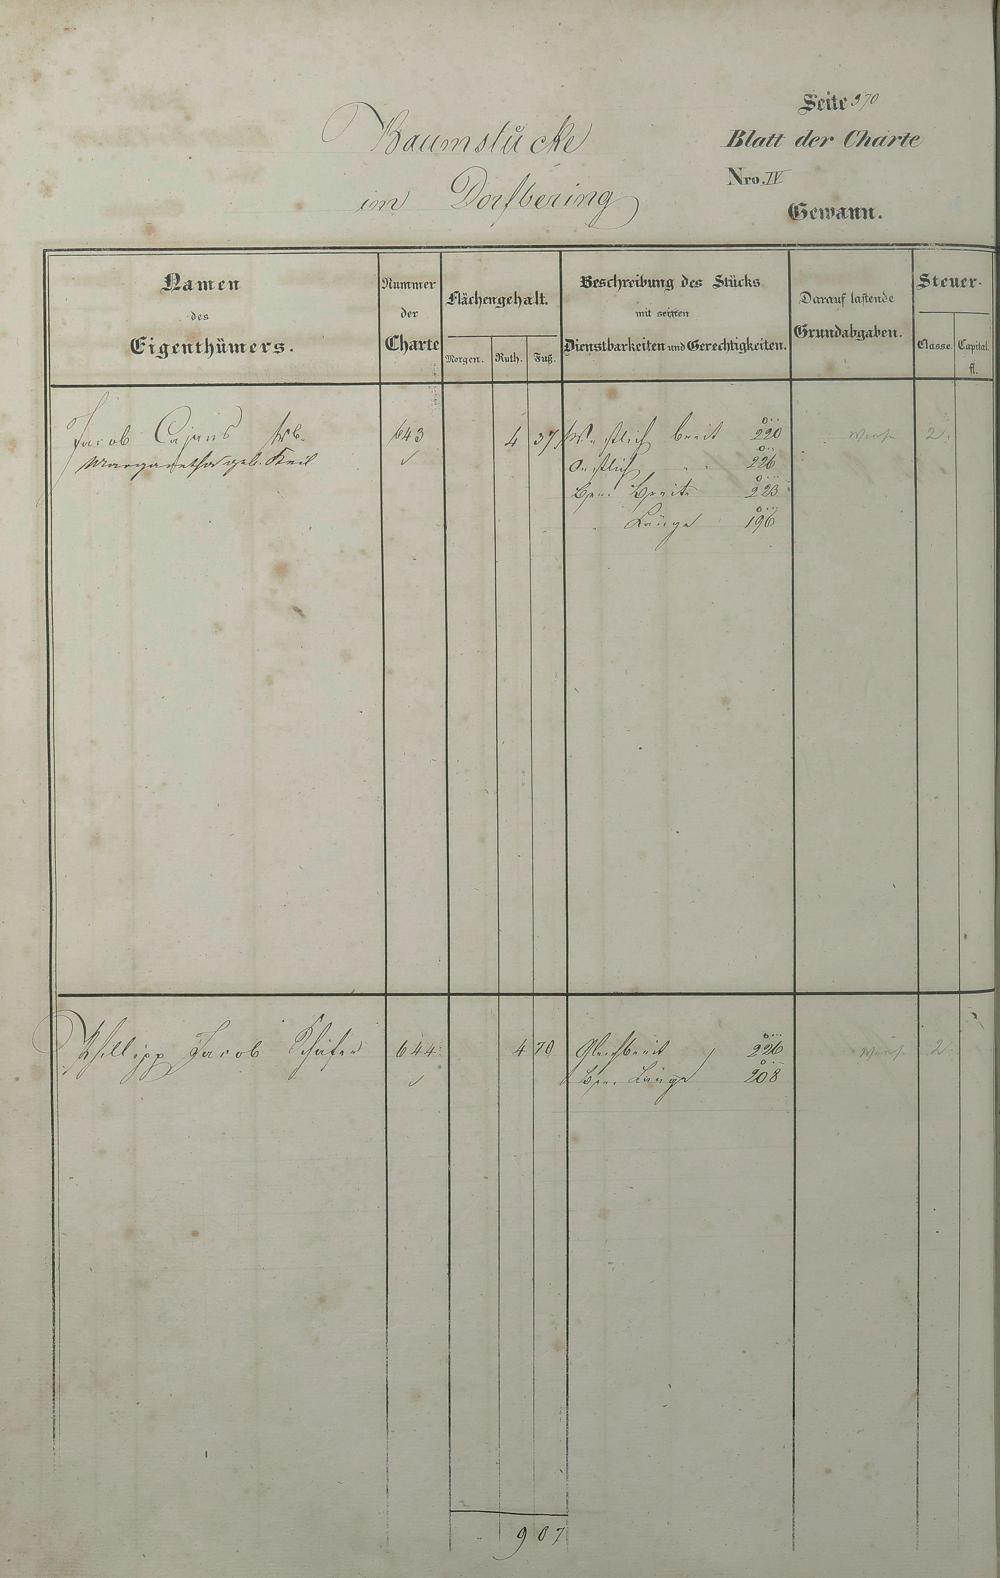 Seite 370
Baumstücke
Blatt der Charte
im Dorfbering
Nro. IV
Gewann.
Namen
des
Eigenthümers.
Nummer
der
Charte
Flächengehalt.
Morgen. Ruth. Fuß.
Beschreibung des Stücks
mit seinen
Dienstbarkeiten und Gerechtigkeiten.
Darauf lastende
Grundabgaben.
Steuer-
Classe. Capital.
fl.
Jacob Cajus 643 4 37 Westlich breit 220 2.
Margaretha geb. Keil Oestlich " " 226
Ger. Breite 223
" Länge 196
Philipp Jacob Schäfer 644 4 70 Gleichbreit 226 2
Ger. Länge 208
9 07